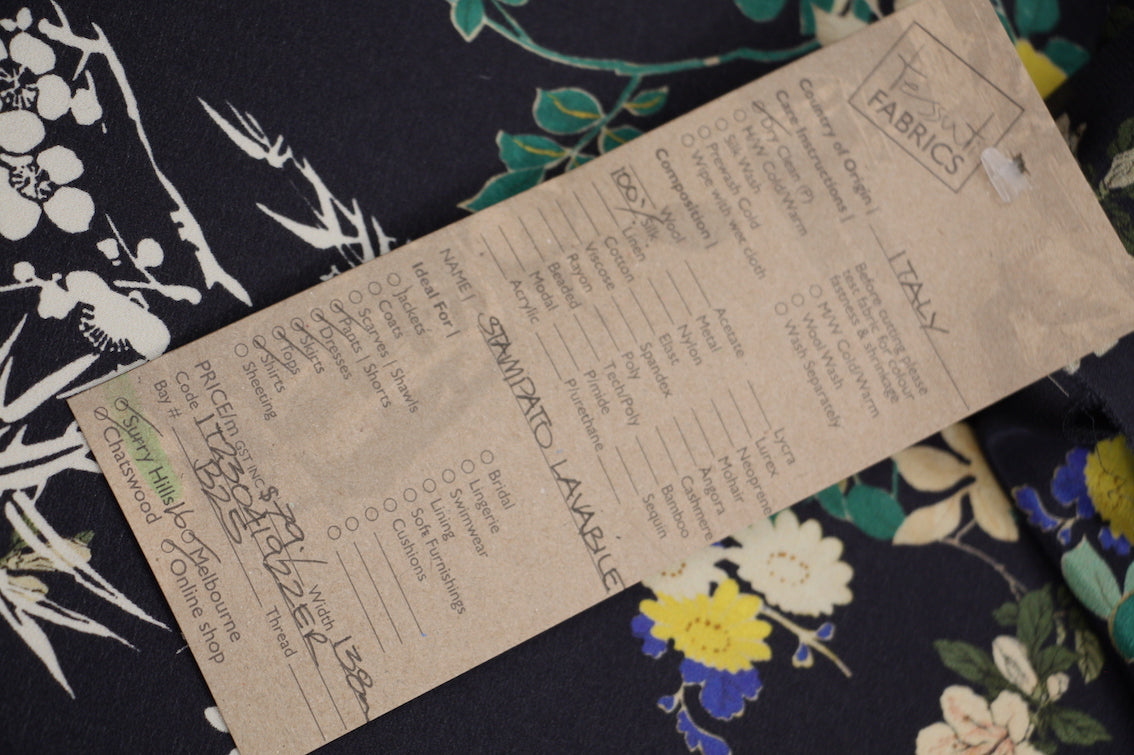 tessuti
FABRICS
Country of Origin | ITALY
Care Instructions |
Dry Clean (P)
H/W Cold/Warm
Silk Wash
Prewash Cold
Wipe with wet cloth
Before cutting please
test fabric for colour
fastness & shrinkage
M/W Cold/Warm
Wool Wash
Wash Separately
Composition |
Wool
100% Silk
Linen
Cotton
Viscose
Rayon
Beaded
Modal
Acrylic
Acetate
Metal
Nylon
Elast
Spandex
Poly
Tech/Poly
Pimide
Plurethane
Lycra
Lurex
Neoprene
Mohair
Angora
Cashmere
Bamboo
Sequin
NAME | STAMPATO LAVABILE
Ideal For |
Jackets
Coats
Scarves | Shawls
Pants | Shorts
Dresses
Skirts
Tops
Shirts
Sheeting
Bridal
Lingerie
Swimwear
Lining
Soft Furnishings
Cushions
PRICE/m GST INC $79./ Width 138m
Code
Bay # B25 Thread
Surry Hills Melbourne
Chatswood Online shop